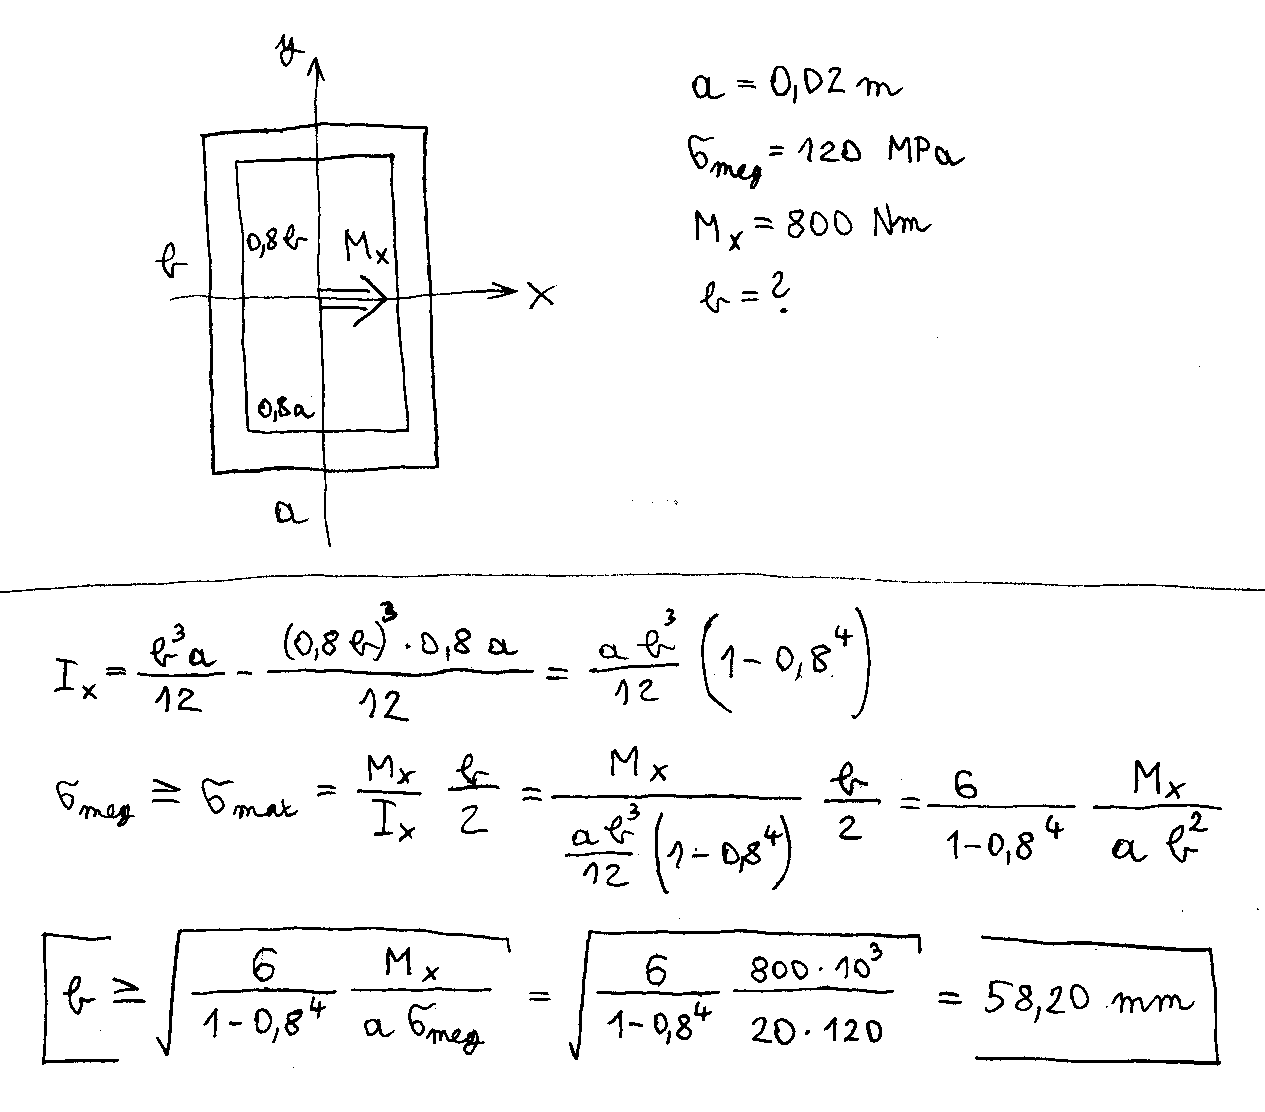 y
a = 0,02 m
σmeg = 120 MPa
Mx = 800 Nm
b = ?
0,8b Mx
b
x
0,8a
a
Ix = b³a/12 - (0,8 b)³·0,8 a/12 = a b³/12 (1-0,8⁴)
σmeg ≥ σmax = Mx/Ix b/2 = Mx/(a b³/12 (1-0,8⁴)) b/2 = 6/(1-0,8⁴) Mx/(a b²)
b ≥ √(6/(1-0,8⁴) Mx/(a σmeg)) = √(6/(1-0,8⁴) 800·10³/(20·120)) = 58,20 mm